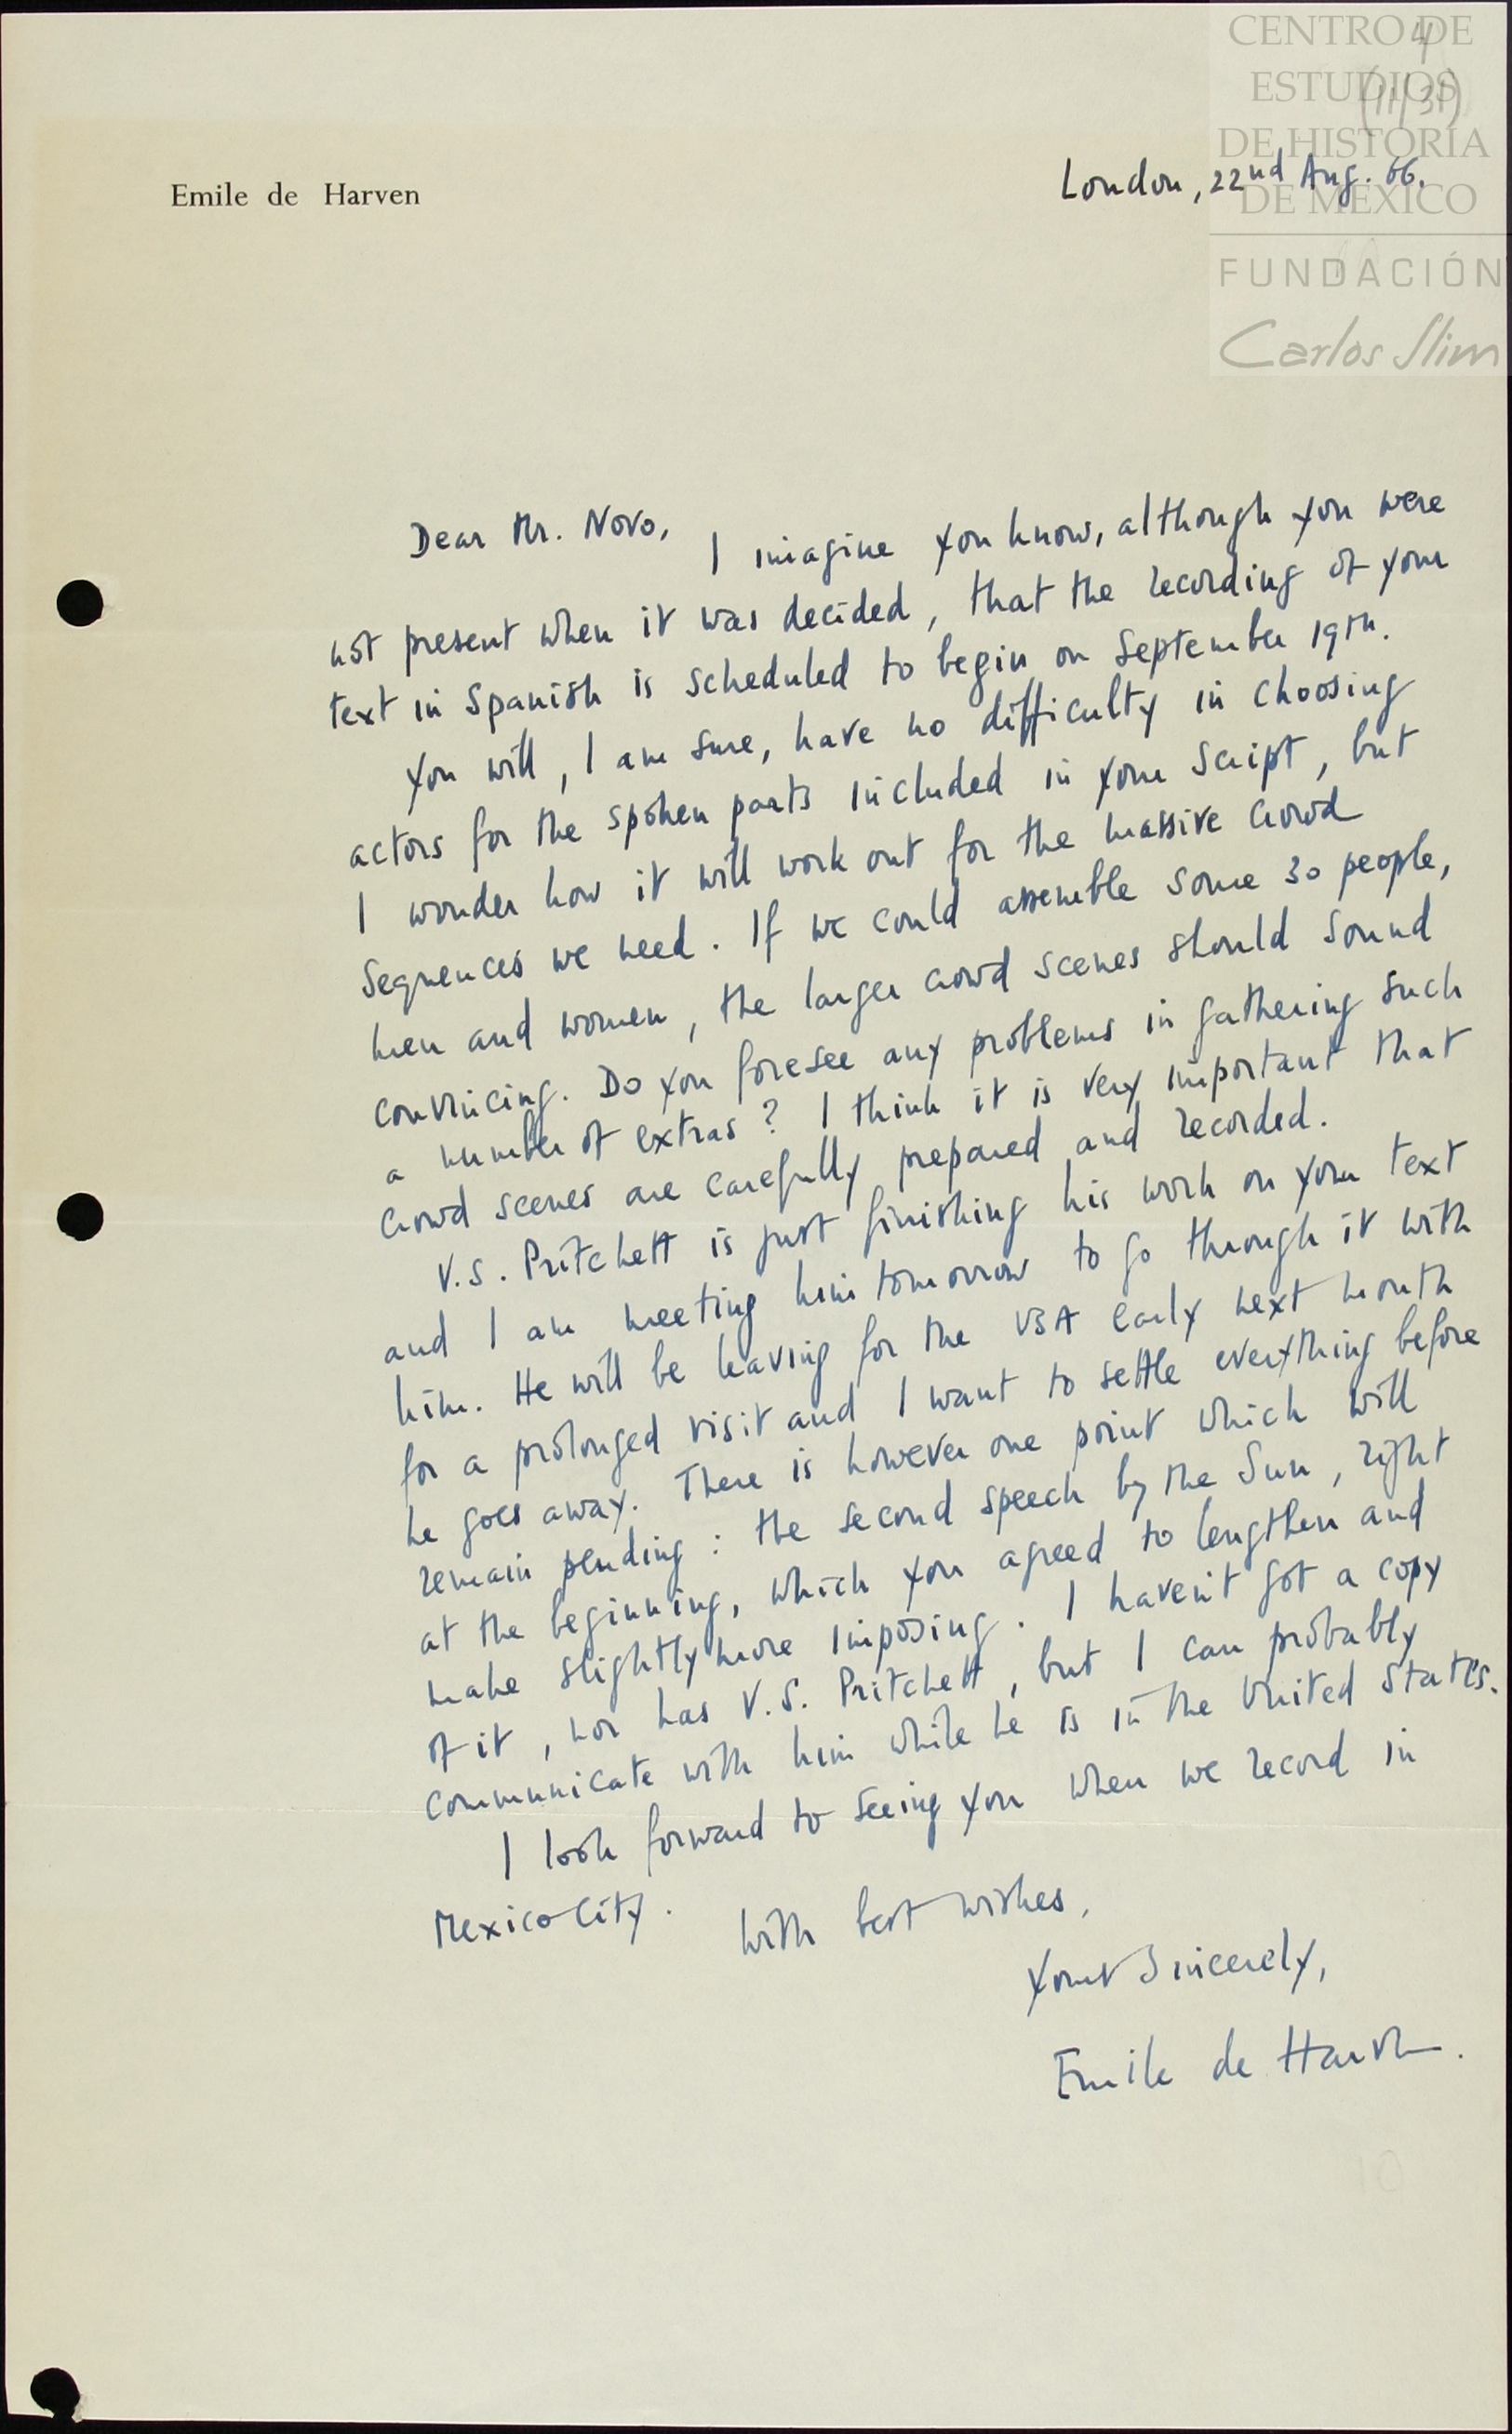 CENTRO DE
ESTUDIOS
DE HISTORIA
DE MÉXICO
FUNDACIÓN
Carlos Slim
4
(11/31)
Emile de Harven
London, 22nd Aug. 66.
Dear Mr. Novo,
I imagine you know, although you were
not present when it was decided, that the recording of your
text in Spanish is scheduled to begin on September 19th.
You will, I am sure, have no difficulty in choosing
actors for the spoken parts included in your script, but
I wonder how it will work out for the massive crowd
sequences we need. If we could assemble some 30 people,
men and women, the larger crowd scenes should sound
convincing. Do you foresee any problems in gathering such
a number of extras? I think it is very important that
crowd scenes are carefully prepared and recorded.
V.S. Pritchett is just finishing his work on your text
and I am meeting him tomorrow to go through it with
him. He will be leaving for the USA early next month
for a prolonged visit and I want to settle everything before
he goes away. There is however one point which will
remain pending: the second speech by the Sun, right
at the beginning, which you agreed to lengthen and
make slightly more imposing. I haven't got a copy
of it, nor has V.S. Pritchett, but I can probably
communicate with him while he is in the United States.
I look forward to seeing you when we record in
Mexico City.
With best wishes,
Yours sincerely,
Emile de Harven.
10